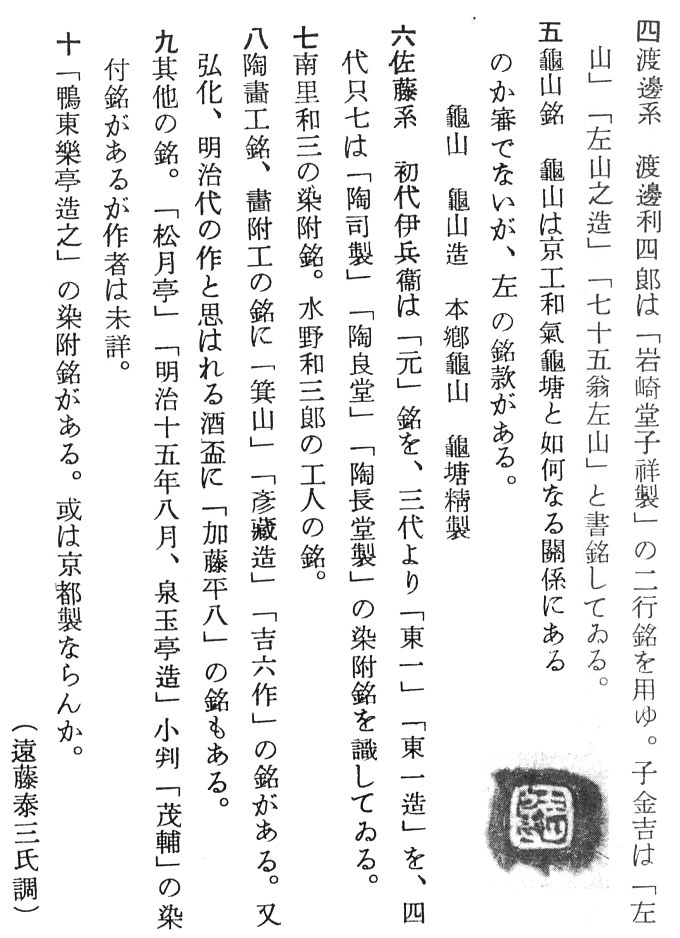 四渡邊系　渡邊利四郎は「岩崎堂子祥製」の二行銘を用ゆ。子金吉は「左
山」「左山之造」「七十五翁左山」と書銘してゐる。
五龜山銘　龜山は京工和氣龜塘と如何なる關係にある
のか審でないが、左の銘款がある。
龜山　龜山造　本鄕龜山　龜塘精製
六佐藤系　初代伊兵衞は「元」銘を、三代より「東一」「東一造」を、四
代只七は「陶司製」「陶良堂」「陶長堂製」の染附銘を識してゐる。
七南里和三の染附銘。水野和三郎の工人の銘。
八陶畵工銘、畵附工の銘に「箕山」「彥藏造」「吉六作」の銘がある。又
弘化、明治代の作と思はれる酒盃に「加藤平八」の銘もある。
九其他の銘。「松月亭」「明治十五年八月、泉玉亭造」小判「茂輔」の染
付銘があるが作者は未詳。
十「鴨東樂亭造之」の染附銘がある。或は京都製ならんか。
（遠藤泰三氏調）